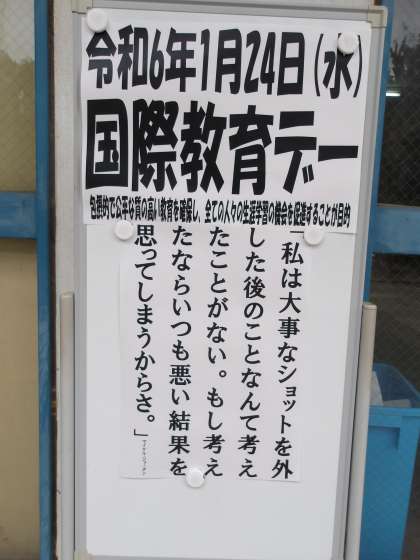 令和6年1月24日(水)
国際教育デー
包摂的で公平な質の高い教育を確保し、全ての人々の生涯学習の機会を促進することが目的
「私は大事なショットを外
した後のことなんて考え
たことがない。もし考え
たならいつも悪い結果を
思ってしまうからさ。」マイケル・ジョーダン